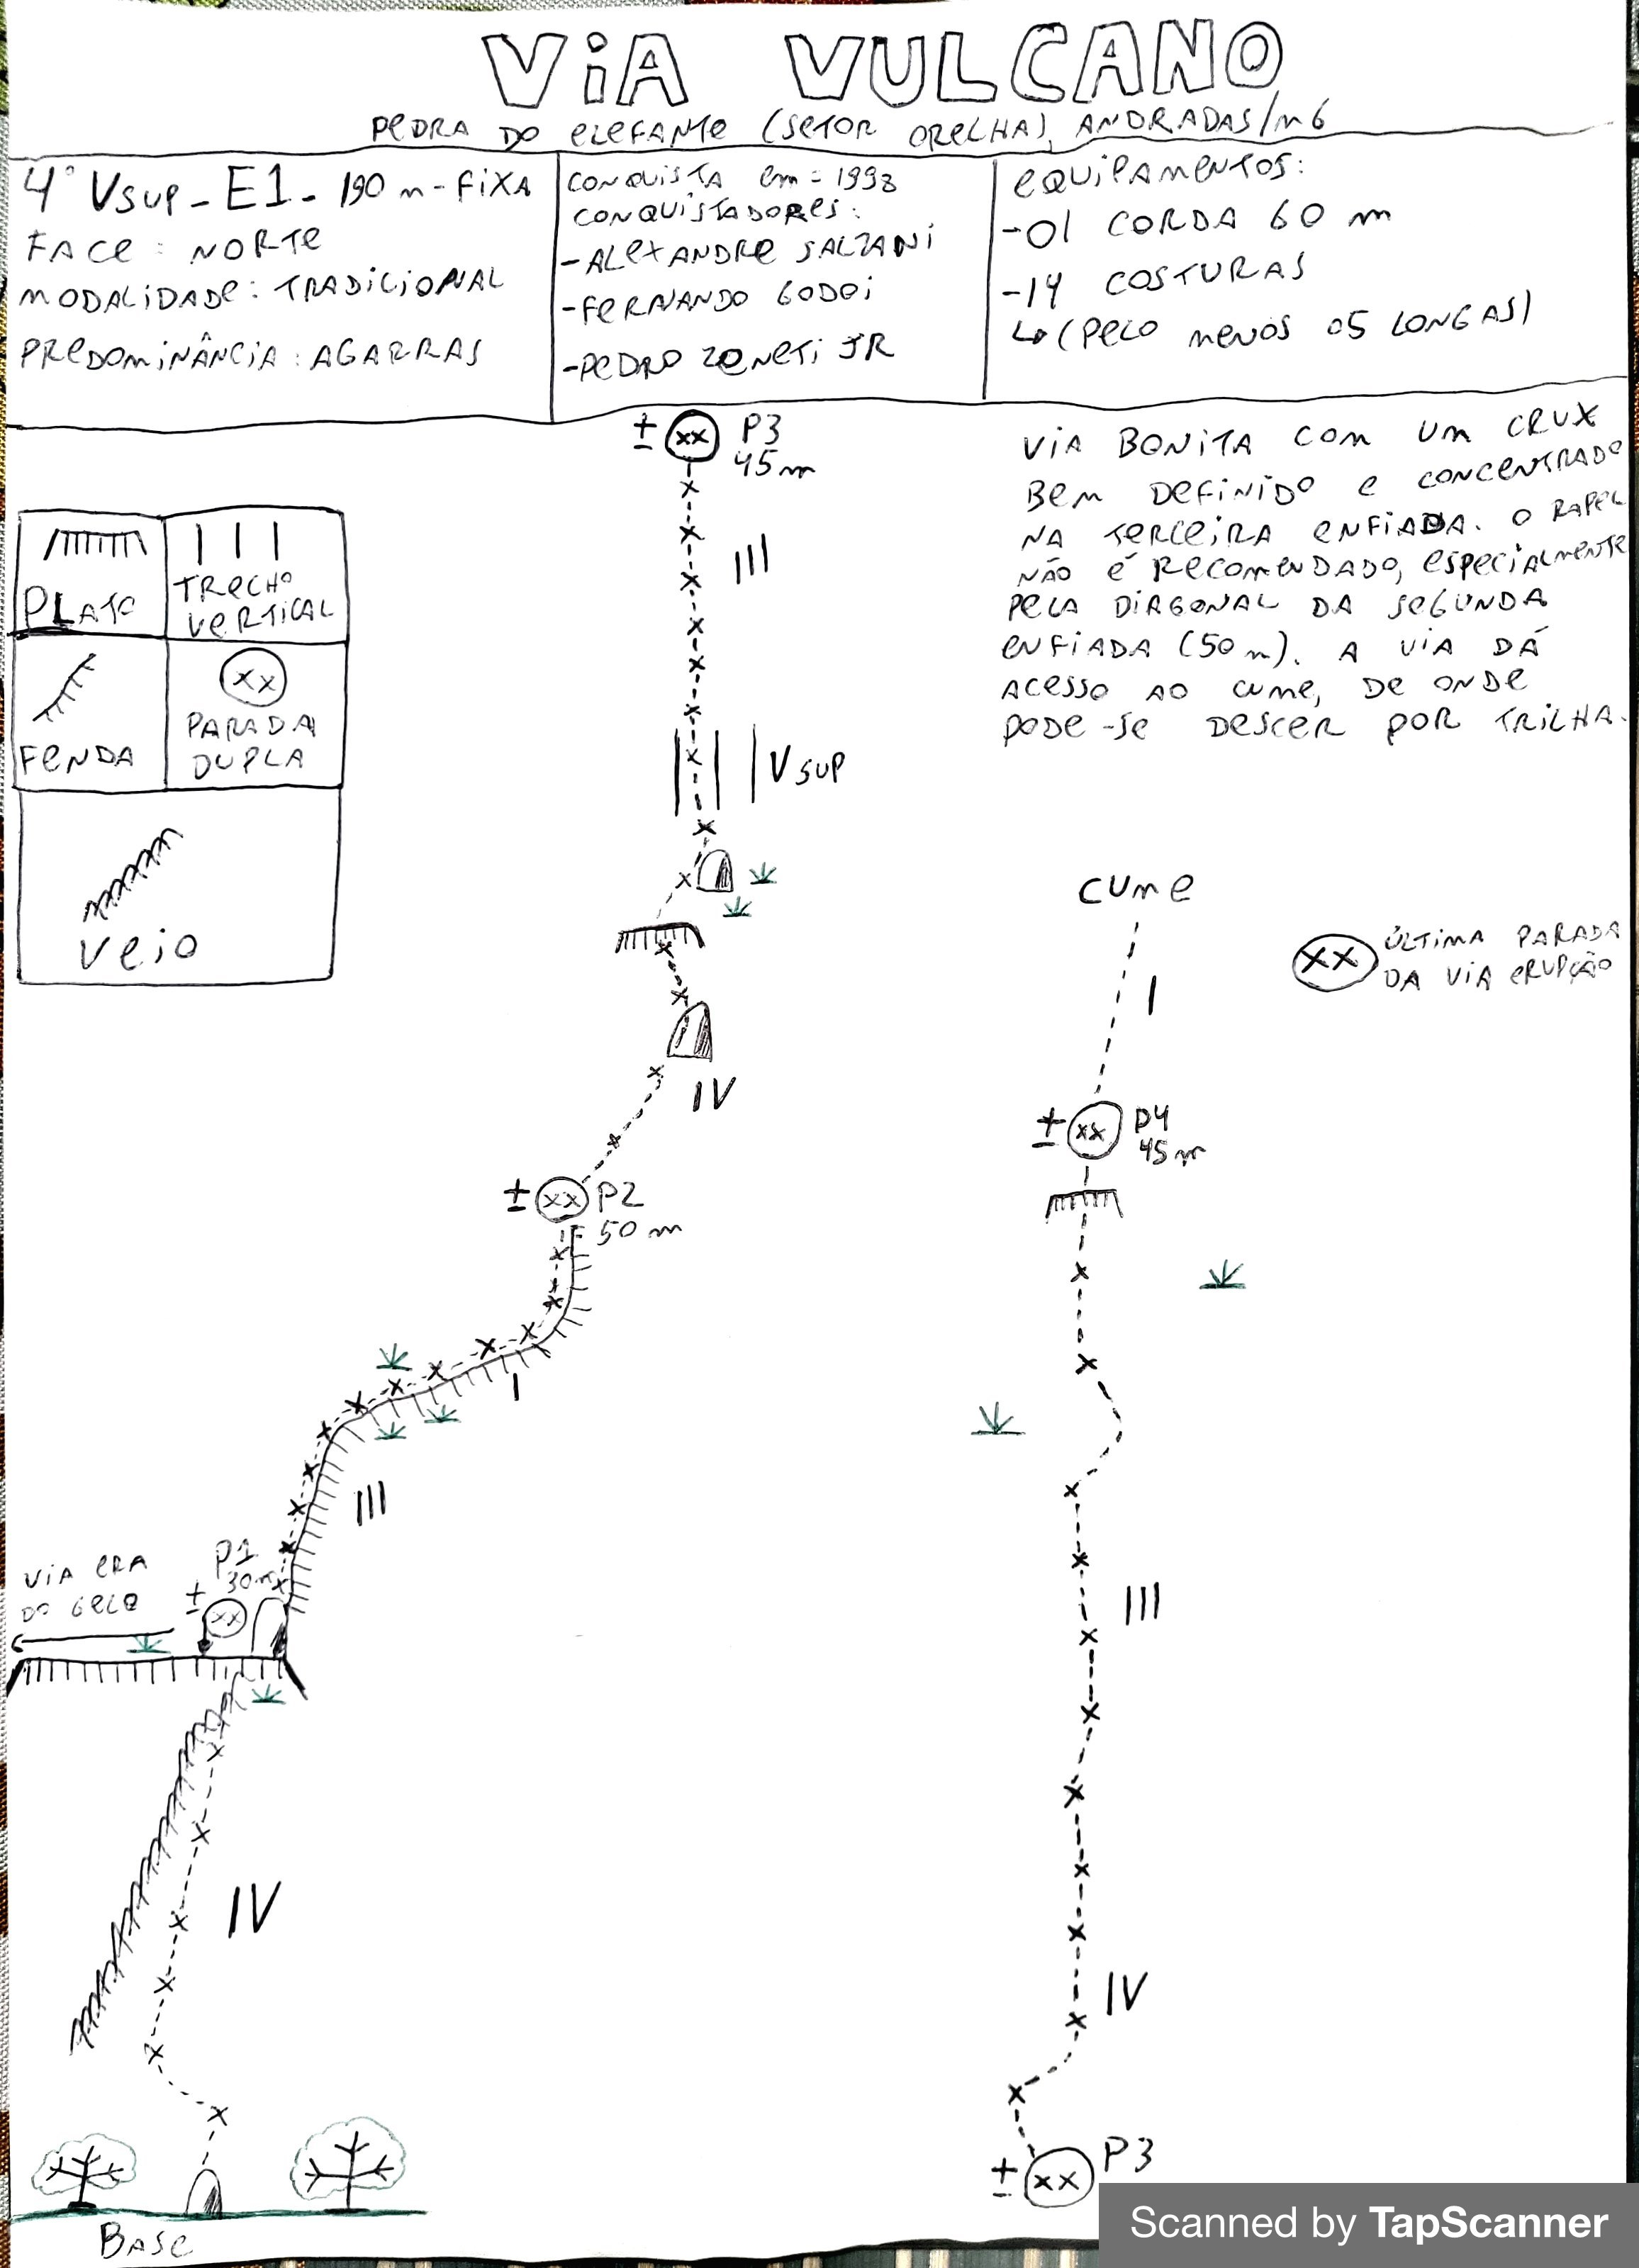 ViA VULCANO
PEDRA DO ELEFANTE (SETOR ORELHA), ANDRADAS/MG
4° Vsup - E1 - 190 m - FiXA
FACE: NORTE
MODALIDADE: TRADICIONAL
PREDOMINÂNCIA: AGARRAS
CONQUISTA em = 1998
CONQUISTADORES:
-ALEXANDRE SALZANI
-FERNANDO GODOI
-PEDRO ZENETI JR
EQUIPAMENTOS:
-01 CORDA 60 m
-14 COSTURAS
↳ (PELO MENOS 05 LONGAS)
ViA BONITA COM UM CRUX
BEM DEFINIDO E CONCENTRADO
NA TERCEIRA ENFIADA. O RAPEL
NÃO É RECOMENDADO, ESPECIALMENTE
PELA DIAGONAL DA SEGUNDA
ENFIADA (50 m). A VIA DÁ
ACESSO AO CUME, DE ONDE
PODE-SE DESCER POR TRILHA.
PLATO
TRECHO
VERTICAL
FENDA
XX
PARADA
DUPLA
VEIO
± XX P3
45 m
III
Vsup
IV
± XX P2
50 m
I
III
P1
30 m
± XX
VIA ERA
DO GELO
IV
BASE
CUME
I
XX ÚLTIMA PARADA
DA VIA ERUPÇÃO
± XX P4
45 m
III
IV
± XX P3
Scanned by TapScanner